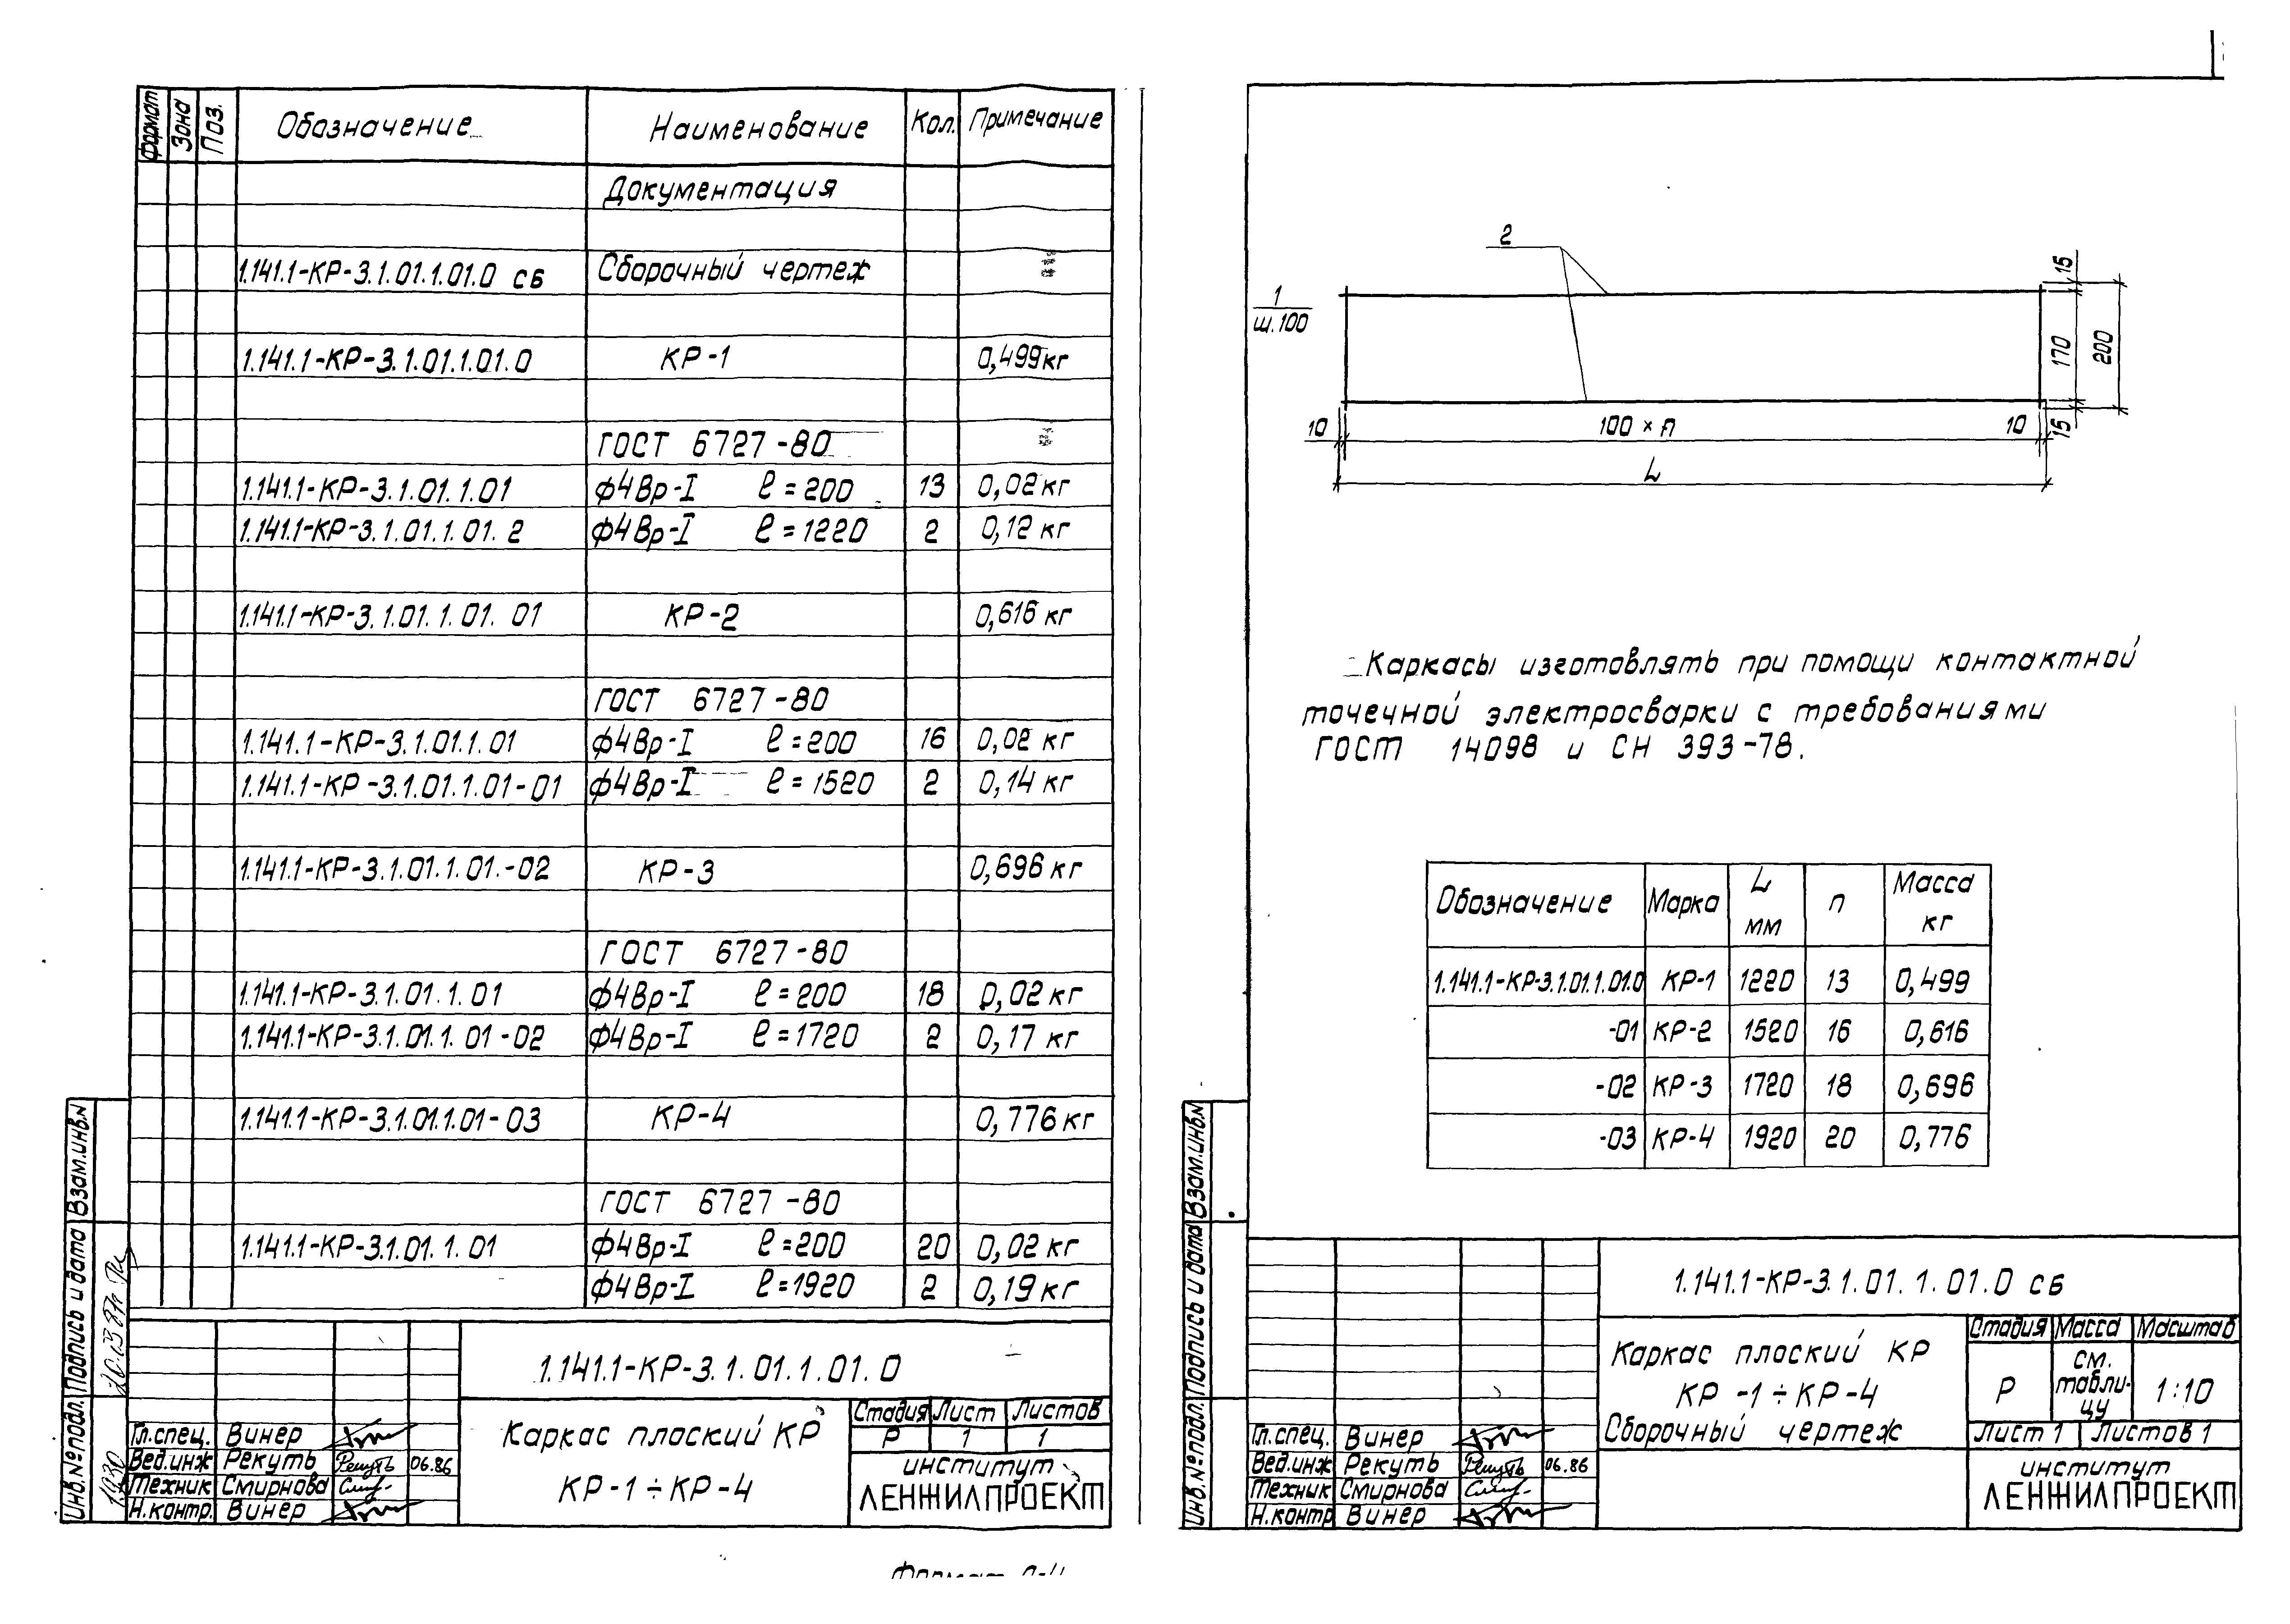 Формат Зона Поз. Обозначение Наименование Кол. Примечание
Документация
1.141.1-КР-3.1.01.1.01.0 сб Сборочный чертеж
1.141.1-КР-3.1.01.1.01.0 КР-1 0,499кг
ГОСТ 6727-80
1.141.1-КР-3.1.01.1.01 ф4Вр-I ℓ=200 13 0,02кг
1.141.1-КР-3.1.01.1.01.2 ф4Вр-I ℓ=1220 2 0,12 кг
1.141.1-КР-3.1.01.1.01.01 КР-2 0,616 кг
ГОСТ 6727-80
1.141.1-КР-3.1.01.1.01 ф4Вр-I ℓ=200 16 0,02 кг
1.141.1-КР-3.1.01.1.01-01 ф4Вр-I ℓ=1520 2 0,14 кг
1.141.1-КР-3.1.01.1.01.-02 КР-3 0,696 кг
ГОСТ 6727-80
1.141.1-КР-3.1.01.1.01 ф4Вр-I ℓ=200 18 0,02 кг
1.141.1-КР-3.1.01.1.01-02 ф4Вр-I ℓ=1720 2 0,17 кг
1.141.1-КР-3.1.01.1.01-03 КР-4 0,776 кг
ГОСТ 6727-80
1.141.1-КР-3.1.01.1.01 ф4Вр-I ℓ=200 20 0,02 кг
ф4Вр-I ℓ=1920 2 0,19 кг
Взам.инв.N
Подпись и дата
Инв.№подл.
1930
1.141.1-КР-3.1.01.1.01.0
Каркас плоский КР
КР-1÷КР-4
Стадия Лист Листов
Р 1 1
институт
ЛЕНЖИЛПРОЕКТ
Гл.спец. Винер
Вед.инж Рекуть Рекуть 06.86
Техник Смирнова
Н.контр. Винер
Формат
2
1
ш.100
15
170
200
15
10 100 × п 10
L
Каркасы изготовлять при помощи контактной
точечной электросварки с требованиями
ГОСТ 14098 и СН 393-78.
Обозначение Марка L мм п Масса кг
1.141.1-КР-3.1.01.1.01.0 КР-1 1220 13 0,499
-01 КР-2 1520 16 0,616
-02 КР-3 1720 18 0,696
-03 КР-4 1920 20 0,776
Взам.инв.N
Подпись и дата
Инв.№подл.
1.141.1-КР-3.1.01.1.01.0 сб
Каркас плоский КР
КР-1÷КР-4
Сборочный чертеж
Стадия Масса Масштаб
Р см. таблицу 1:10
Лист 1 Листов 1
институт
ЛЕНЖИЛПРОЕКТ
Гл.спец. Винер
Вед.инж Рекуть Рекуть 06.86
Техник Смирнова
Н.контр Винер